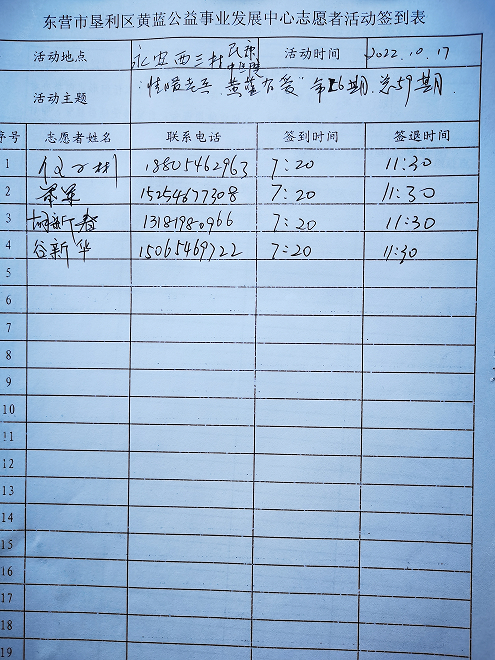 东营市垦利区黄蓝公益事业发展中心志愿者活动签到表
活动地点 永安西三村 活动时间 2022.10.17
活动主题 "情暖老兵 黄蓝有爱" 第26期 总59期
序号 志愿者姓名 联系电话 签到时间 签退时间
1 18805462963 7:20 11:30
2 15254677308 7:20 11:30
3 胡新春 13181980966 7:20 11:30
4 谷新华 15065469722 7:20 11:30
5
6
7
8
9
10
11
12
13
14
15
16
17
18
19